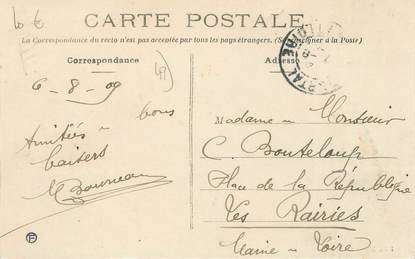 10 €
CARTE POSTALE
La Correspondance du recto n'est pas acceptée par tous les pays étrangers. (Se renseigner à la Poste)
Correspondance
Adresse
49
6-8-09
bons
Amitiés
baisers
Madame Monsieur
C. Bouteloup
Place de la République
Les Rairies
Maine Loire